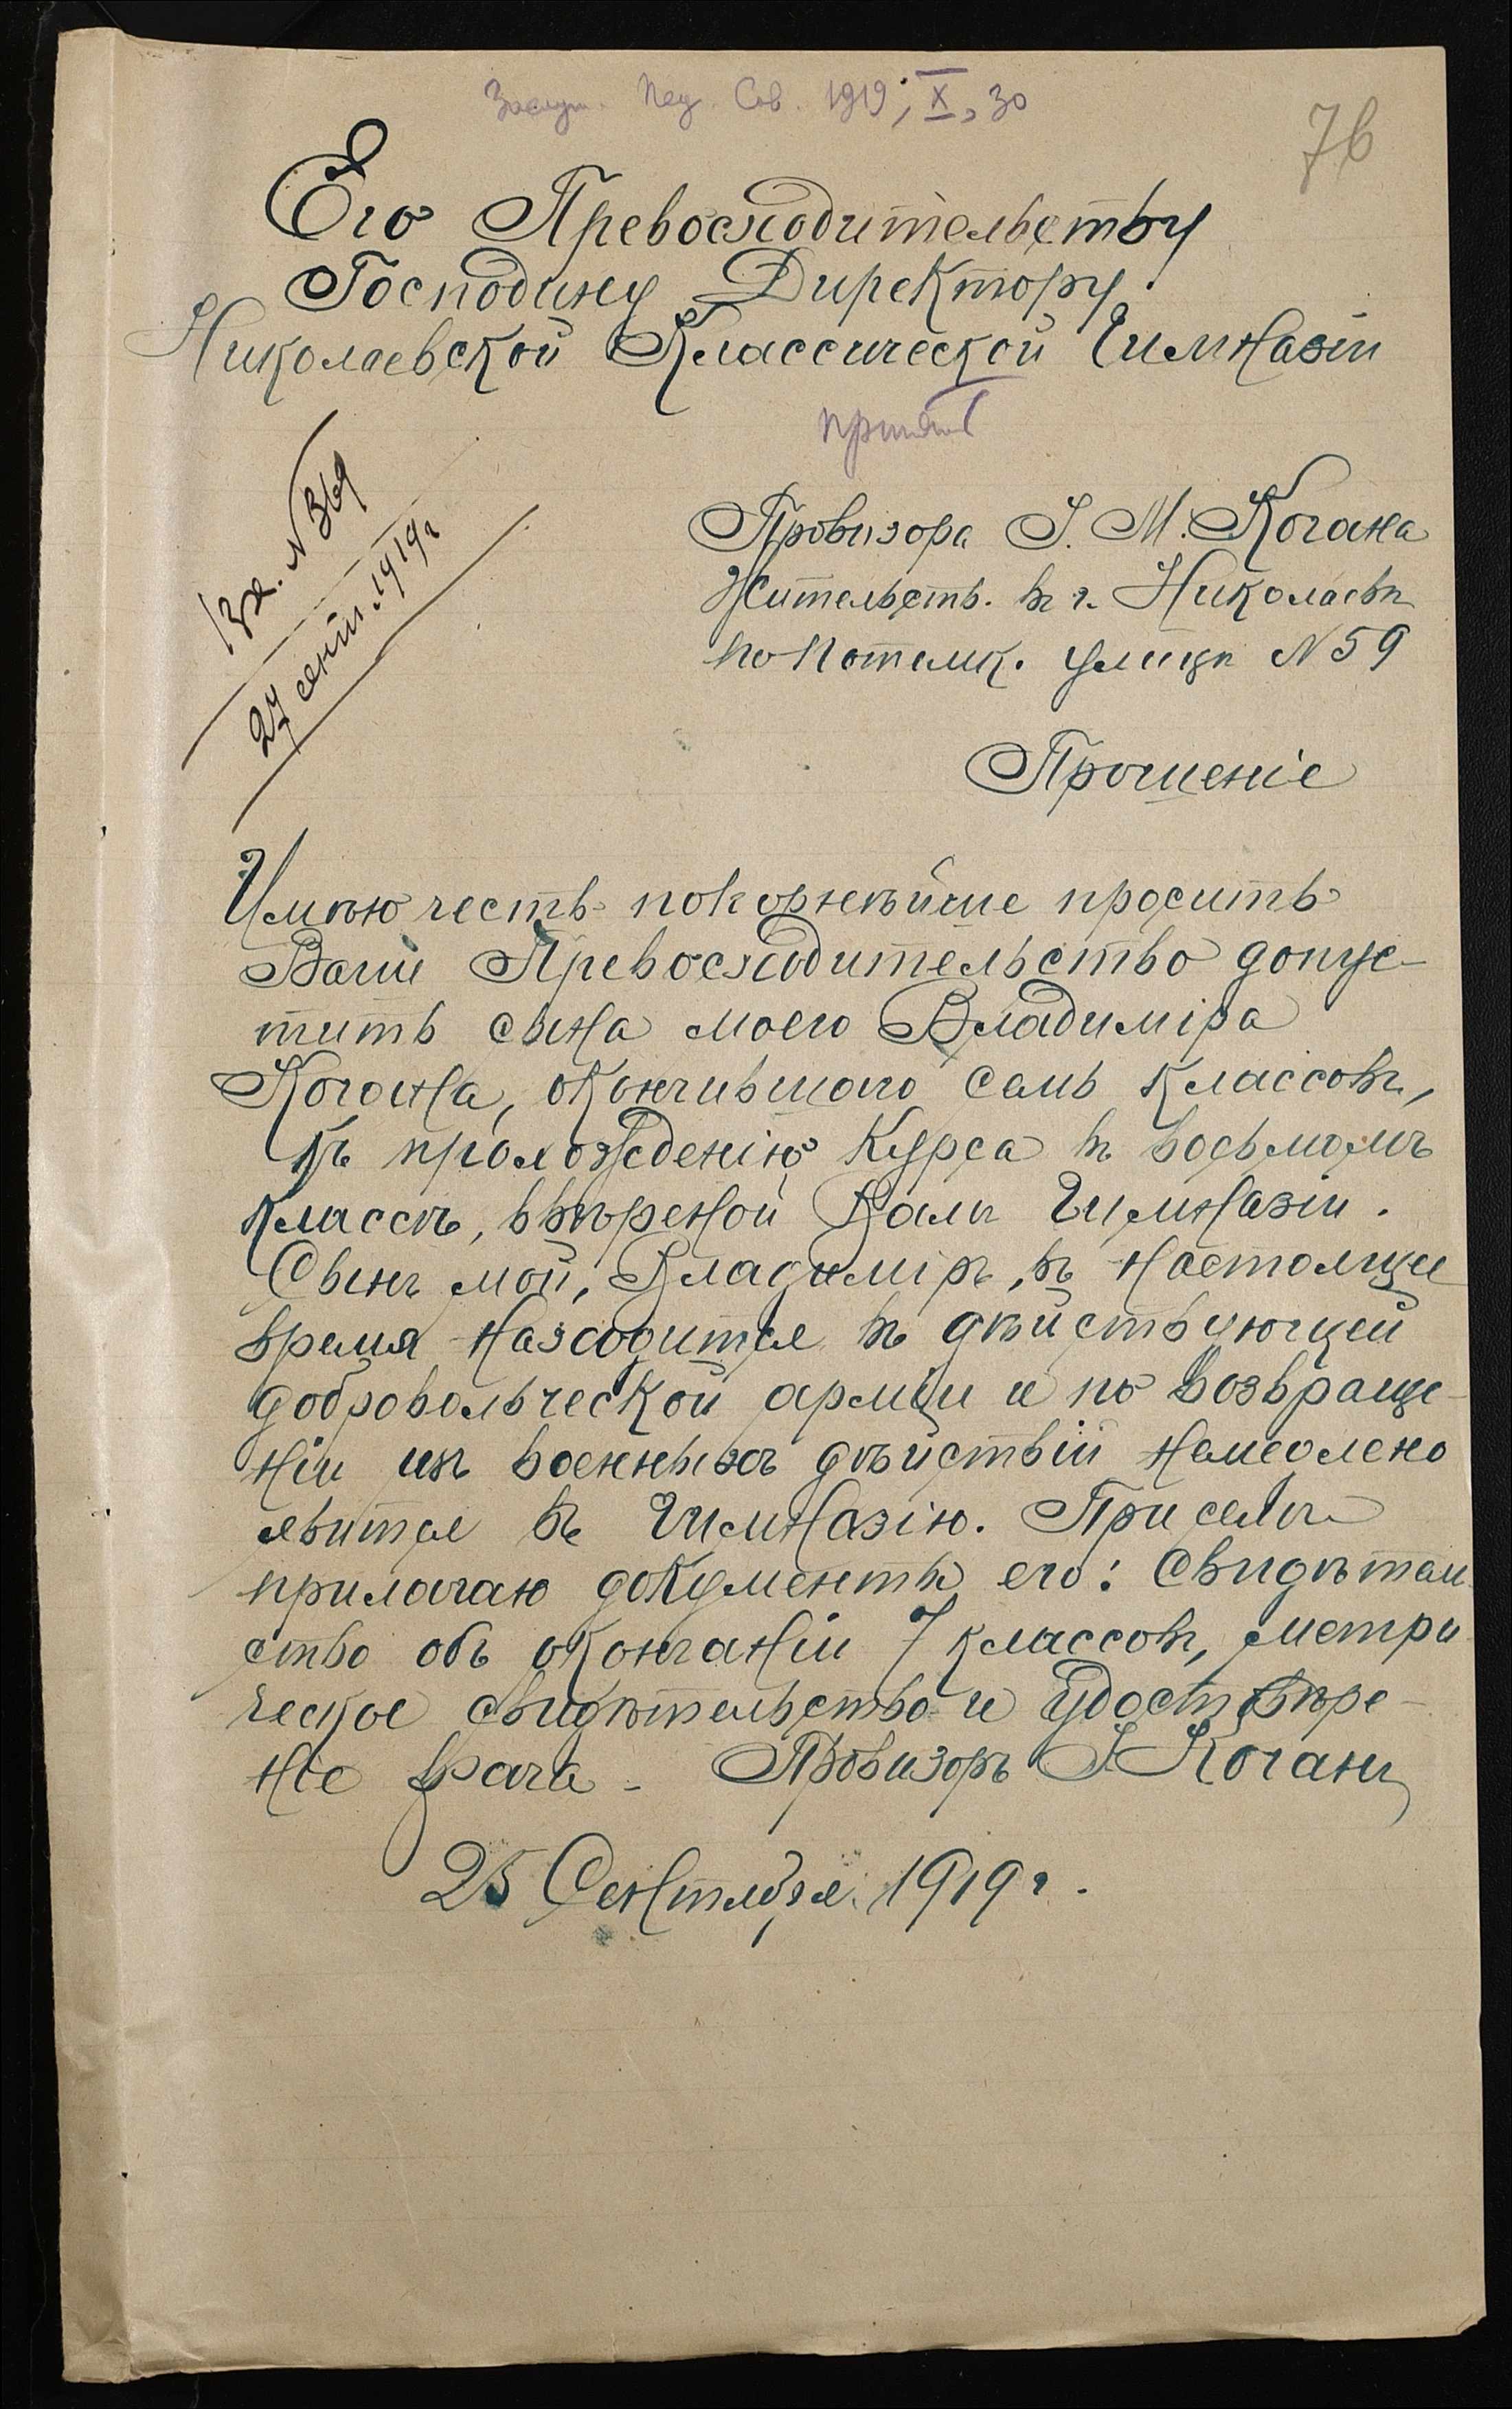 Засѣд. Пед. Сов. 1919, X, 30
76
Его Превосходительству
Господину Директору
Николаевской Классической Гимназіи
принять
Вх. N 369
27 сент. 1919 г
Провизора І. М. Когана
Жительств. въ г. Николаевѣ
по Потемк. улицѣ N 59
Прошеніе
Имѣю честь покорнѣйше просить
Ваше Превосходительство допус-
тить сына моего Владиміра
Когана, окончившаго семь классовъ,
къ прохожденію курса въ восьмомъ
классѣ, ввѣреной Вамъ Гимназіи.
Сынъ мой, Владиміръ, въ настоящее
время находится въ дѣйствующей
добровольческой арміи и по возвраще-
ніи изъ военныхъ дѣйствій немедлено
явится въ Гимназію. При семъ
прилагаю документы его: Свидѣтель
ство объ окончаніи 7 классовъ, метри
ческое свидѣтельство и удоствѣре-
ніе врача - Провизоръ І Коганъ
25 Сентября 1919 г.